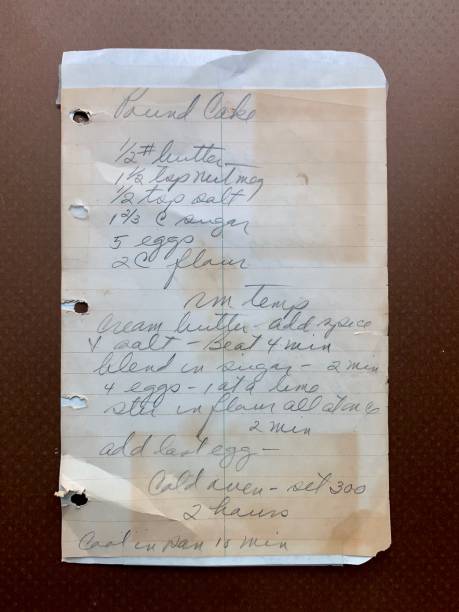 Pound Cake
1/2 # butter
1 1/2 tsp nutmeg
1/2 tsp salt
1 2/3 C sugar
5 eggs
2 C flour
rm temp
Cream butter - add spice
& salt - Beat 4 min
blend in sugar - 2 min
4 eggs - 1 at a time
stir in flour all at once
2 min
add last egg -
Cold oven - set 300
2 hours
Cool in pan 15 min